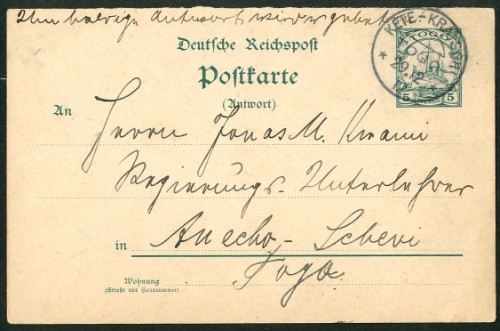 Um baldige Antwort wird gebeten
Deutsche Reichspost
Postkarte
(Antwort)
KETE-KRATSCHI
TOGO
TOGO
5 5
An
Herrn Jonas M. Kwami
Regierungs-Unterlehrer
in Anecho-Sebevi
Togo.
Wohnung
(Straße und Hausnummer)